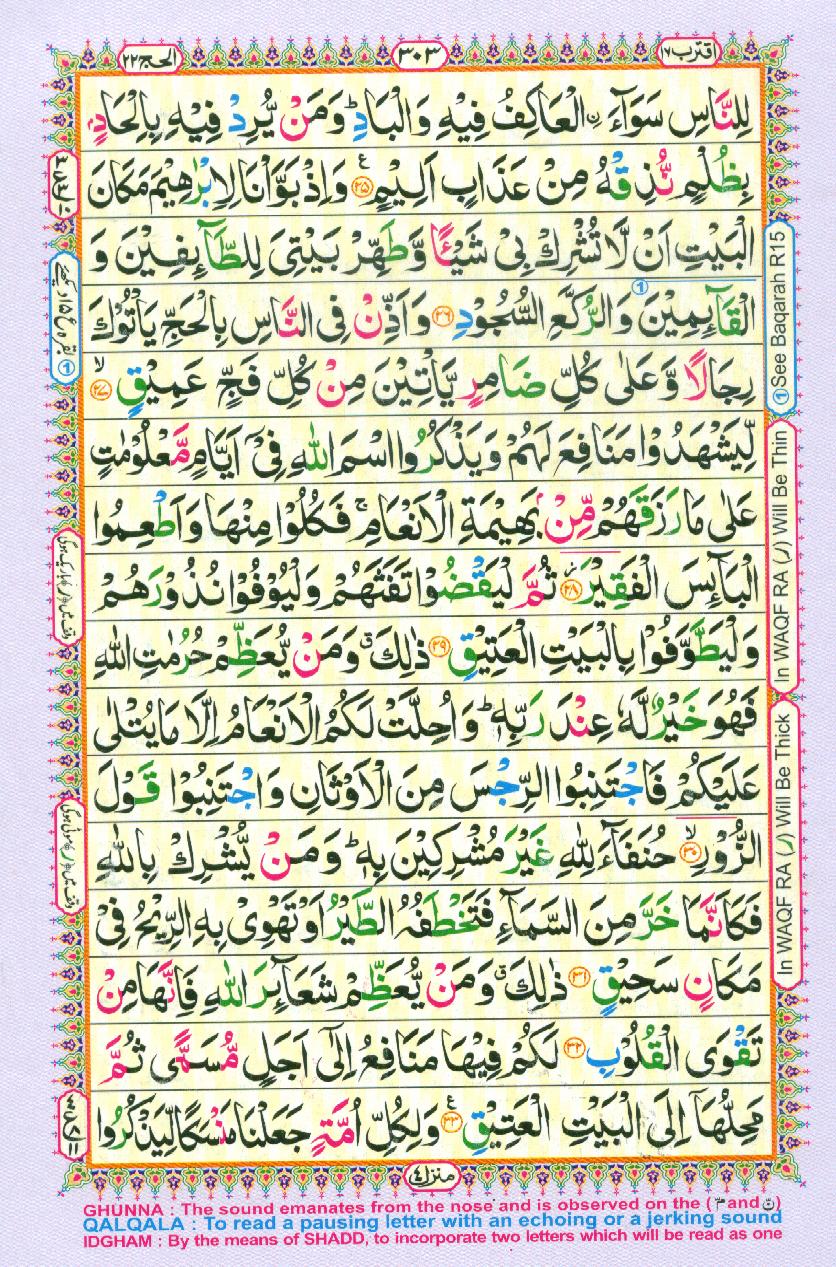 اقترب ١٧
٣٠٣
الحج ٢٢
لِلنَّاسِ سَوَآءَ ۨالْعَاكِفُ فِيْهِ وَالْبَادِ ؕ وَمَنْ يُّرِدْ فِيْهِ بِاِلْحَادٍۭ
بِظُلْمٍ نُّذِقْهُ مِنْ عَذَابٍ اَلِيْمٍ ﴿٢٥﴾ وَاِذْ بَوَّاْنَا لِاِبْرٰهِيْمَ مَكَانَ
الْبَيْتِ اَنْ لَّا تُشْرِكْ بِىْ شَيْـًٔا وَّطَهِّرْ بَيْتِىَ لِلطَّآئِفِيْنَ وَ
الْقَآئِمِيْنَ وَالرُّكَّعِ السُّجُوْدِ ﴿٢٦﴾ وَاَذِّنْ فِى النَّاسِ بِالْحَجِّ يَاْتُوْكَ
رِجَالًا وَّعَلٰى كُلِّ ضَامِرٍ يَّاْتِيْنَ مِنْ كُلِّ فَجٍّ عَمِيْقٍ ﴿٢٧﴾ ۙ
لِّيَشْهَدُوْا مَنَافِعَ لَهُمْ وَيَذْكُرُوا اسْمَ اللّٰهِ فِىْۤ اَيَّامٍ مَّعْلُوْمٰتٍ
عَلٰى مَا رَزَقَهُمْ مِّنْۢ بَهِيْمَةِ الْاَنْعَامِ ۚ فَكُلُوْا مِنْهَا وَاَطْعِمُوا
الْبَآئِسَ الْفَقِيْرَ ﴿٢٨﴾ ثُمَّ لْيَقْضُوْا تَفَثَهُمْ وَلْيُوْفُوْا نُذُوْرَهُمْ
وَلْيَطَّوَّفُوْا بِالْبَيْتِ الْعَتِيْقِ ﴿٢٩﴾ ذٰلِكَ ۗ وَمَنْ يُّعَظِّمْ حُرُمٰتِ اللّٰهِ
فَهُوَ خَيْرٌ لَّهٗ عِنْدَ رَبِّهٖ ؕ وَاُحِلَّتْ لَكُمُ الْاَنْعَامُ اِلَّا مَا يُتْلٰى
عَلَيْكُمْ فَاجْتَنِبُوا الرِّجْسَ مِنَ الْاَوْثَانِ وَاجْتَنِبُوْا قَوْلَ
الزُّوْرِ ﴿٣٠﴾ ۙ حُنَفَآءَ لِلّٰهِ غَيْرَ مُشْرِكِيْنَ بِهٖ ؕ وَمَنْ يُّشْرِكْ بِاللّٰهِ
فَكَاَنَّمَا خَرَّ مِنَ السَّمَآءِ فَتَخْطَفُهُ الطَّيْرُ اَوْ تَهْوِىْ بِهِ الرِّيْحُ فِىْ
مَكَانٍ سَحِيْقٍ ﴿٣١﴾ ذٰلِكَ ۗ وَمَنْ يُّعَظِّمْ شَعَآئِرَ اللّٰهِ فَاِنَّهَا مِنْ
تَقْوَى الْقُلُوْبِ ﴿٣٢﴾ لَكُمْ فِيْهَا مَنَافِعُ اِلٰٓى اَجَلٍ مُّسَمًّى ثُمَّ
مَحِلُّهَاۤ اِلَى الْبَيْتِ الْعَتِيْقِ ﴿٣٣﴾ وَلِكُلِّ اُمَّةٍ جَعَلْنَا مَنْسَكًا لِّيَذْكُرُوا
منزل ٤
① See Baqarah R15
In WAQF RA (ر) Will Be Thin
In WAQF RA (ر) Will Be Thick
GHUNNA : The sound emanates from the nose and is observed on the ( مّ and نّ )
QALQALA : To read a pausing letter with an echoing or a jerking sound
IDGHAM : By the means of SHADD, to incorporate two letters which will be read as one